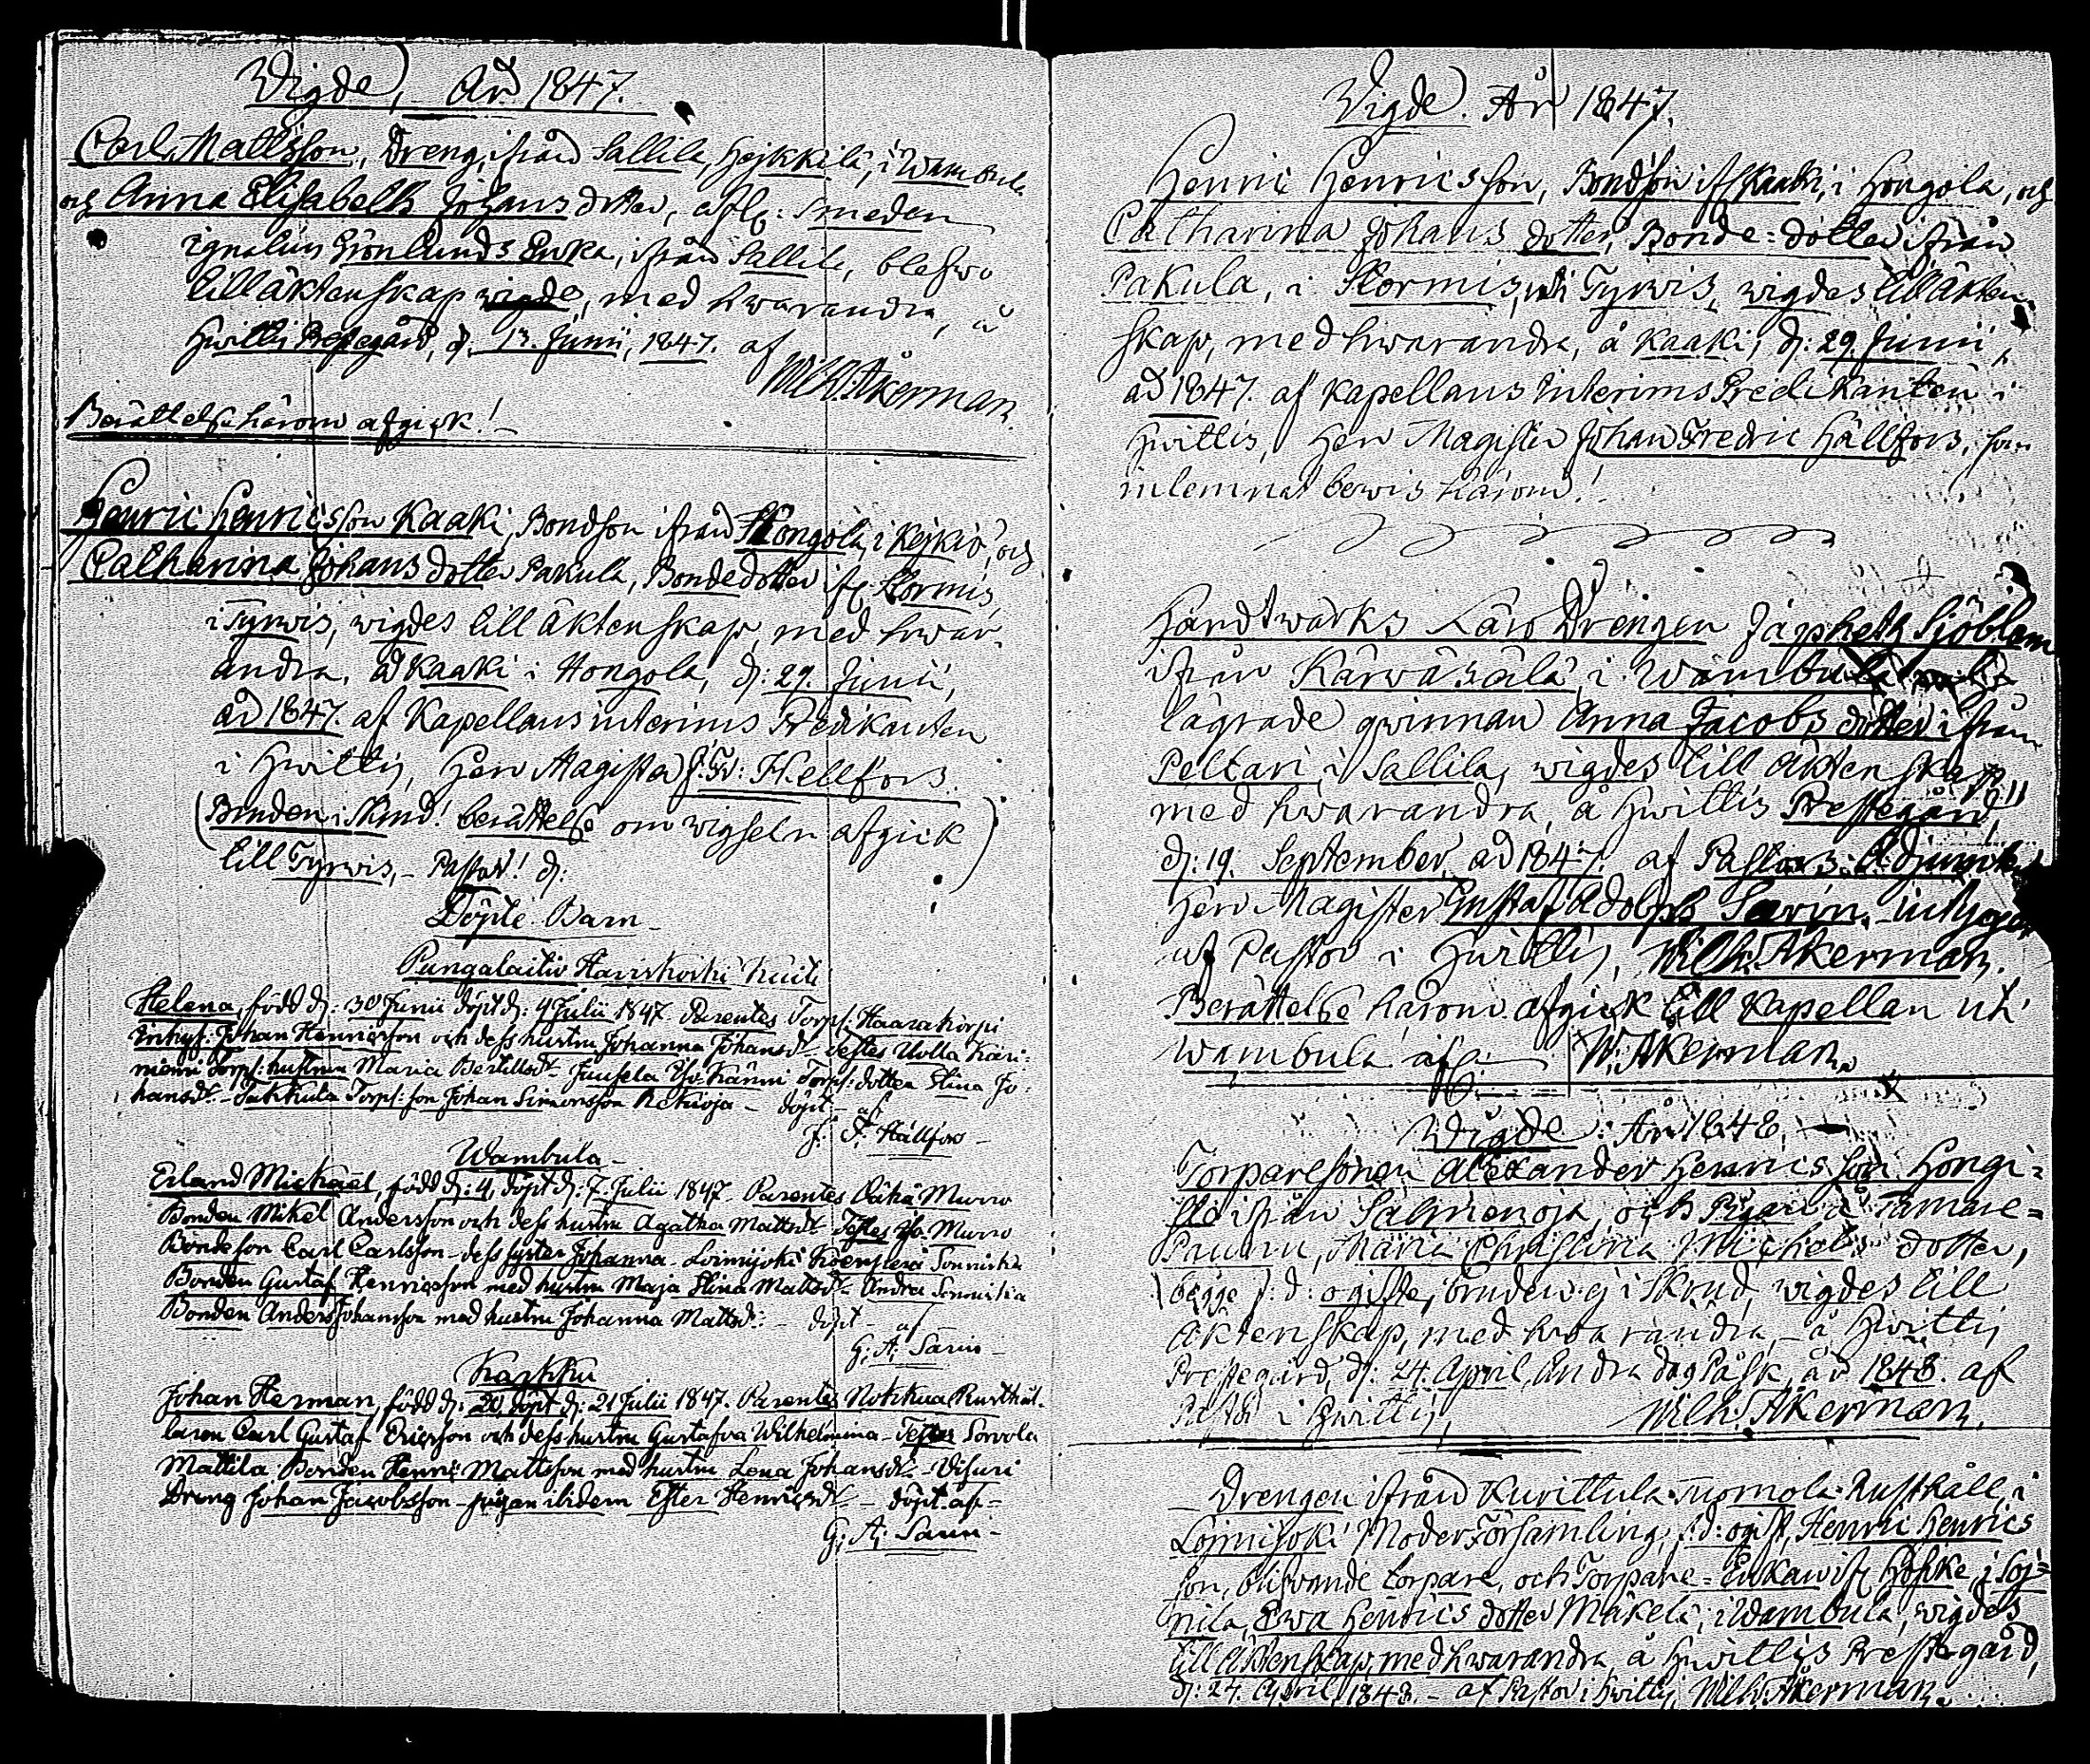 Vigde, År 1847.
Carl Mattsson, Dreng, ifrån Sallila, Hejkkilä, i Wambula
och Anna Elisabeth Johans dotter, afl: Smeden
Ignatius Grönlunds Enka, ifrån Sallila, blefwo
till äktenskap wigde, med hwarandra, å
Hwittis Prestegård, d. 13. Junii, 1847. af
Wilh: Åkerman.
Berättelse härom afgick!
Henric Henricsson Kaaki, Bondson ifrån Hongola, i Kejkiö, och
Catharina Johans dotter Pakula, Bondedotter ifr. Stormis,
i Tyrwis, wigdes till äktenskap, med hwar-
andra, å Kaaki i Hongola, d: 29. Junii,
år 1847. af Kapellans interims Predikanten
i Hwittis, Herr Magister J. Fr: Hellfors.
(Bruden i Skrud! berättelse om wigseln afgick
till Tyrwis, - Pastor! d:
Döpte Barn
Pungalaitio Haviskoski
Helena, född d: 30 Junii döpt d: 4 Julii 1847. Parentes Torp: Haarakorpi
Inhys: Johan Henricsson och dess hustru Johanna Johansdr. Testes Uolla Käri-
niemi Torp: hustrun Maria Bertilsdr. Juusela Yso-Känni Torp: dotter Stina Jo-
hansdr. - Takkula Torp: son Johan Simonsson Rekioja - döpt - af
J. F. Hällfors -
Wambula -
Erland Mickael, född d: 4, döpt d: 7 Julii 1847. Parentes Vähä Murro
Bonden Mikel Andersson och dess hustru Agatha Mattsdr. Testes Yso Murro
Bondeson Carl Carlsson - dess syster Johanna - Loimijoki Sonnista
Bonden Gustaf Henricsson med hustru Maja Stina Mattsdr. Andra Sonnista
Bonden Anders Johansson med hustru Johanna Mattsdr: - döpt - af
G: A: Sarin -
Karkku
Johan Herman, född d: 20, döpt d: 21 Julii 1847. Parentes Nokkua Rusthål-
laren Carl Gustaf Ericsson och dess hustru Gustafva Wilhelmina - Testes Sorvola
Mattila Bonden Henric Mattsson med hustru Lena Johansdr. - Visuri
Dreng Johan Jacobsson - pigan ibidem Ester Henricsdr. - döpt af -
G: A: Sarin -
Vigde. År 1847.
Henric Henricsson, Bondson ifr Kaaki, i Hongola, och
Catharina Johans dotter, Bonde-dotter ifrån
Pakula, i Stormis, uti Tyrwis, wigdes till äkten-
skap, med hwarandra, å Kaaki, d: 29. Junii,
år 1847. af Kapellans Interims Predikanten i
Hwittis, Herr Magister Johan Fredric Hällfors, som
inlemnat bewis härom!
Handtwärks Läro Drengen Japheth Sjöblom
ifrån Kärwäsälä, i Wambula
lägrade qwinnan Anna Jacobs dotter ifrån
Peltari i Sallila, wigdes till äktenskap,
med hwarandra, å Hwittis Prestegård,
d: 19. September år 1847. af Pastors Adjunkten
Herr Magister Gustaf Adolph Sarin, intygar
af Pastor i Hwittis, Wilh: Åkerman.
Berättelse härom afgick till Kapellan uti
Wambula W: Åkerman.
Wigde: År 1848.
Torparesonen Alexander Henricsson Hongi-
sto ifrån Salmenoja, och Pigan å Tamare-
Prunnu, Maria Christina Michels dotter,
begge f: d: ogifte, bruden ej i Skrud, wigdes till
Äktenskap, med hwarandra, - å Hwittis
Prestegård, d: 24. April, Andra dag Påsk, år 1848. af
Pastor i Hwittis, Wilh: Åkerman.
Drengen ifrån Kurittula Tuomola Rusthåll, i
Loimijoki Moderförsamling, f:d: ogift, Henric Henrics
son, blifvande torpare, och Torpare-Enkan ifr Höfke, i Soi-
nila, Ewa Henrics dotter Mäkelä, i Wambula, wigdes
till Äktenskap, med hwarandra å Hwittis Prestegård,
d: 24. April, 1848. - af Pastor i Hwittis, Wilh: Åkerman.